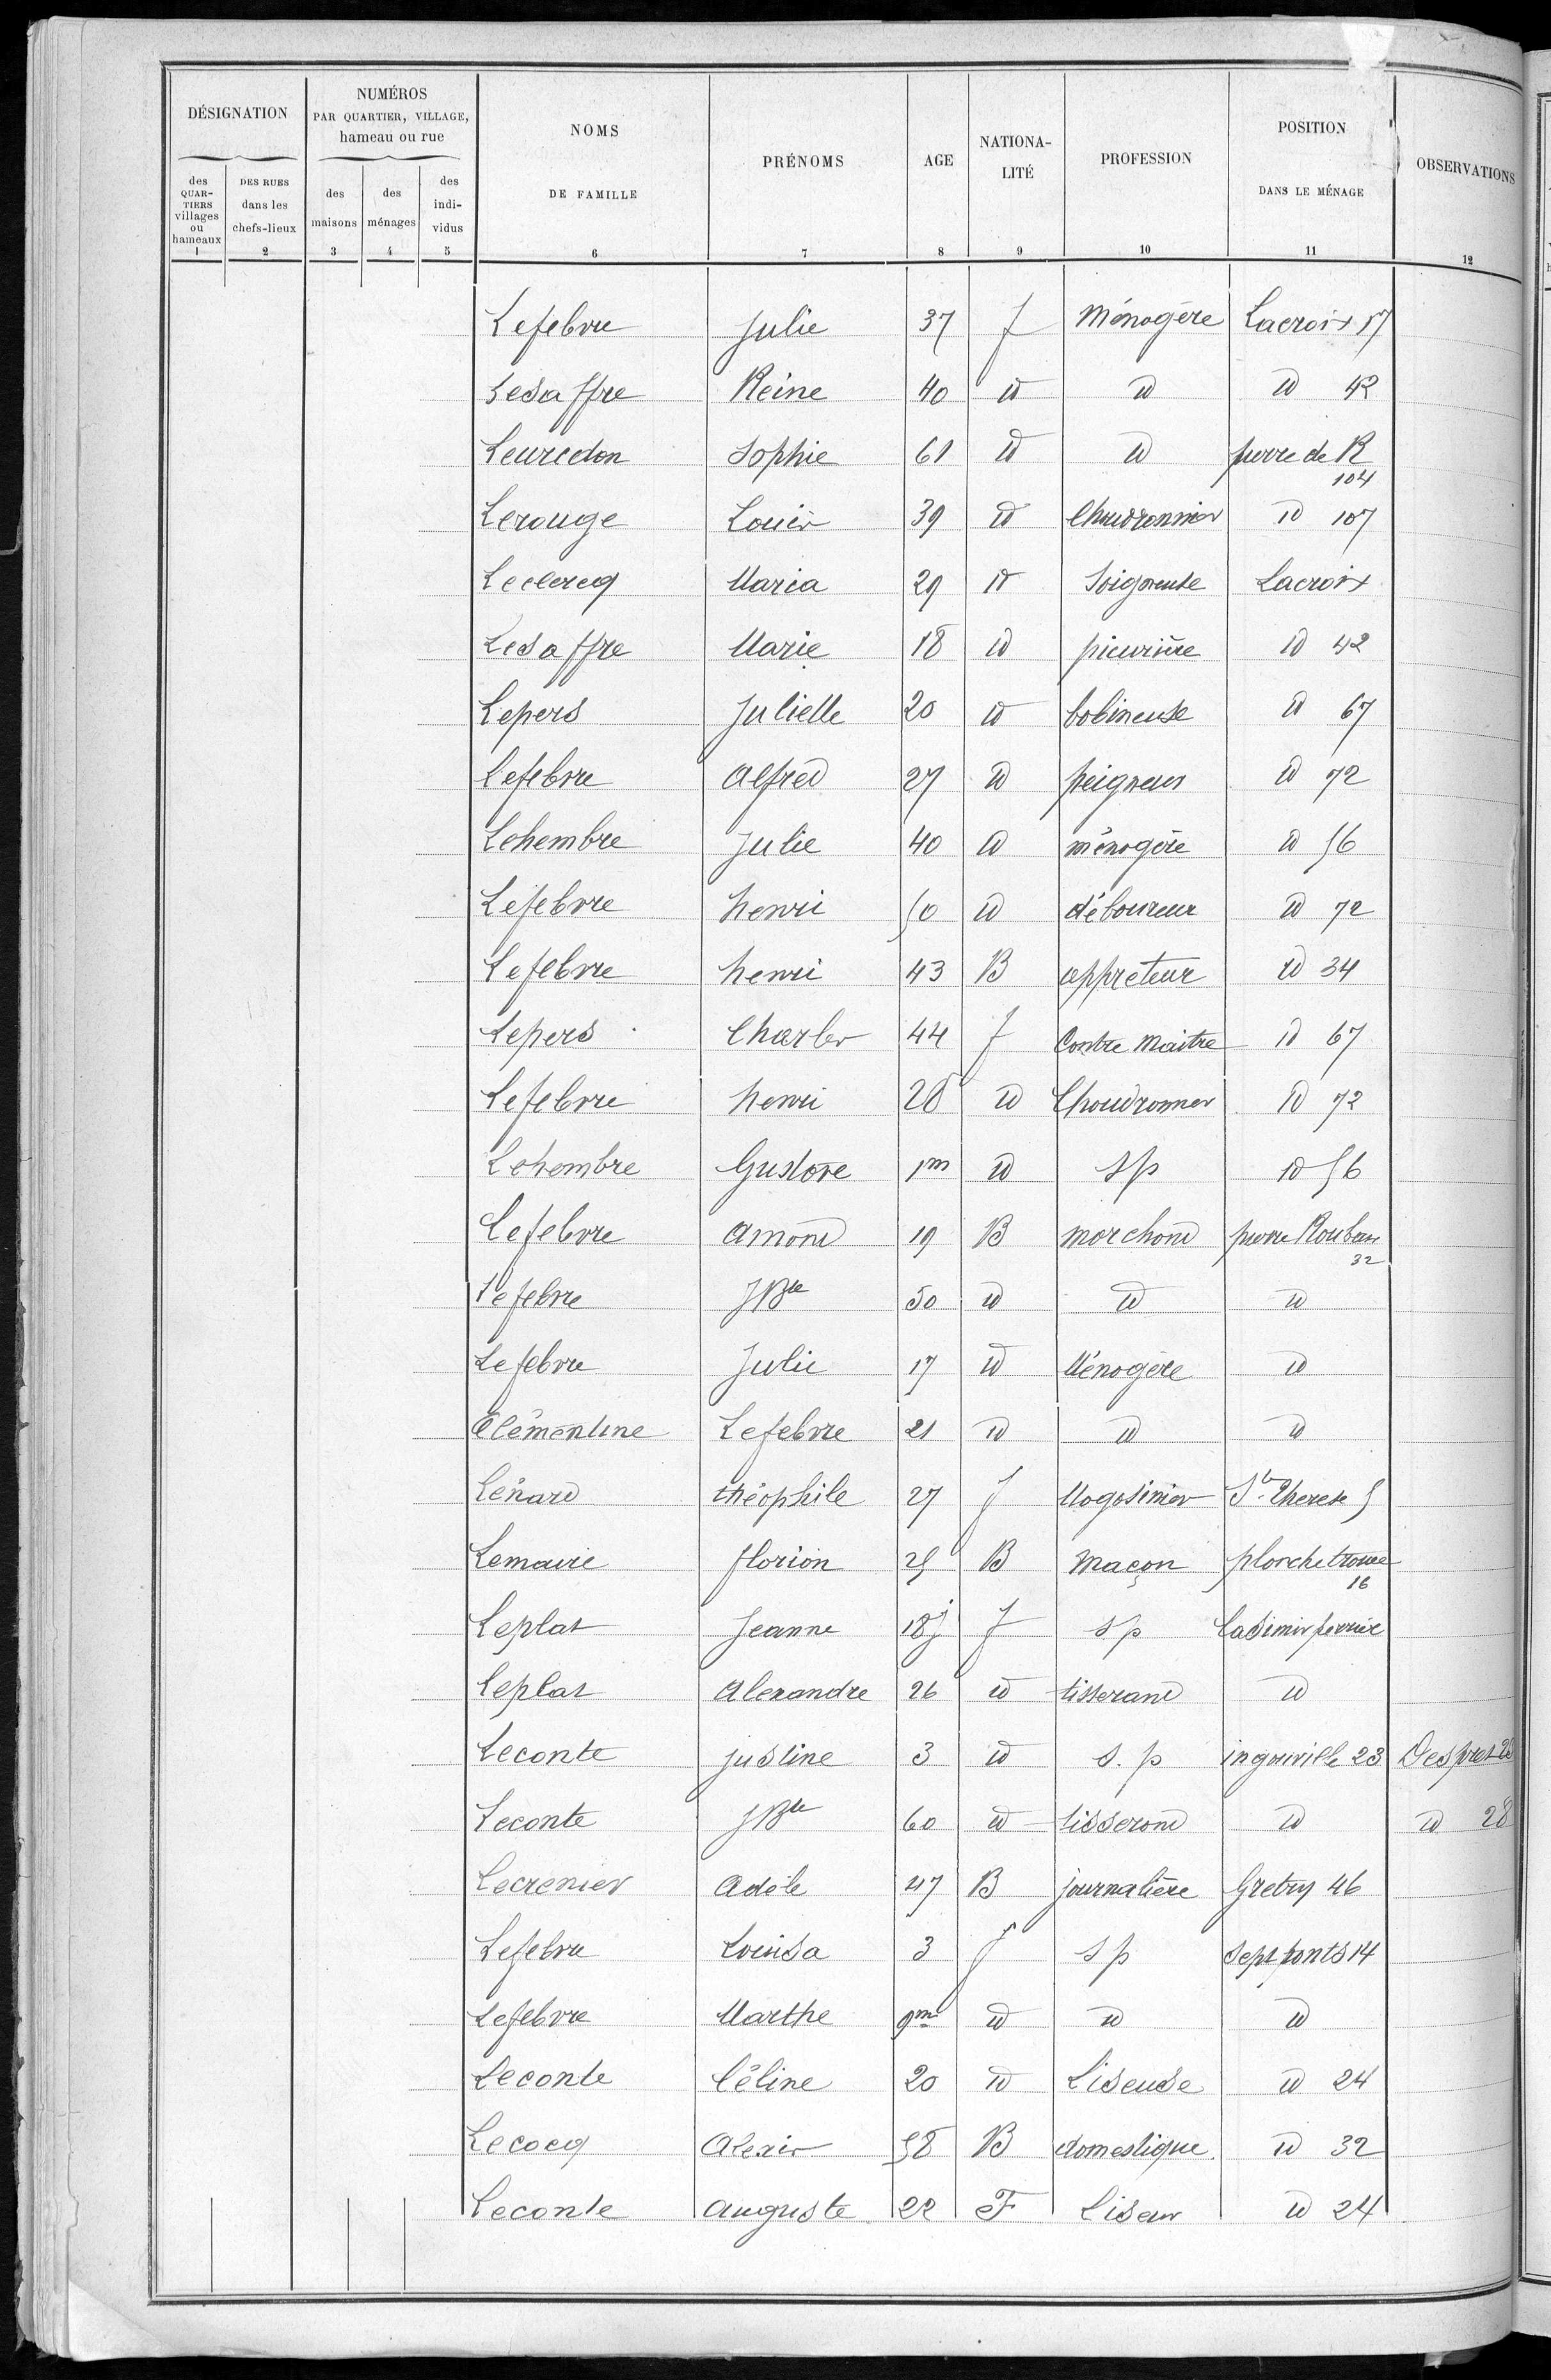 DÉSIGNATION
NUMÉROS
PAR QUARTIER, VILLAGE,
hameau ou rue
NOMS
DE FAMILLE
PRÉNOMS
AGE
NATIONA-
LITÉ
PROFESSION
POSITION
DANS LE MÉNAGE
OBSERVATIONS
des
QUAR-
TIERS
villages
ou
hameaux
DES RUES
dans les
chefs-lieux
des
maisons
des
ménages
des
indi-
vidus
1 2 3 4 5 6 7 8 9 10 11 12
Lefebvre Julie 37 f Ménagère Lacroix 17
Lesaffre Reine 40 id id id 42
Leuridon Sophie 61 id id pierre de R 104
Lerouge Louis 39 id Chaudronnier id 107
Leclercq Maria 29 id Soigneuse Lacroix
Lesaffre Marie 18 id piqurière id 42
Lepers Juliette 20 id bobineuse id 67
Lefebvre Alfred 27 id peigneur id 72
Lehembre Julie 40 id ménagère id 56
Lefebvre henri 50 id déboureur id 72
Lefebvre henri 43 B appreteur id 34
Lepers Charles 44 f Contre Maitre id 67
Lefebvre henri 28 id Chaudronnier id 72
Lehembre Gustave 1m id sp id 56
Lefebvre Amand 19 B marchand pierre Roubaix 32
Lefebvre JBte 50 id id id
Lefebvre Julie 17 id Ménagère id
Clémentine Lefebvre 21 id id id
Lénard théophile 27 f Magasinier Ste Therese 5
Lemaire florian 25 B Maçon planche trouée 16
Leplat Jeanne 18j f sp Casimir perrier
Leplat Alexandre 26 id tisserand id
Leconte justine 3 id s.p ingouville 23 Desprez 28
Leconte JBte 60 id tisserand id id 28
Lecrenier Adèle 47 B journalière Gretry 46
Lefebvre Louisa 3 f sp sept ponts 14
Lefebvre Marthe 9m id id id
Leconte Céline 20 id Liseuse id 24
Lecocq Alexis 58 B domestique id 32
Leconte Auguste 22 F Liseur id 24